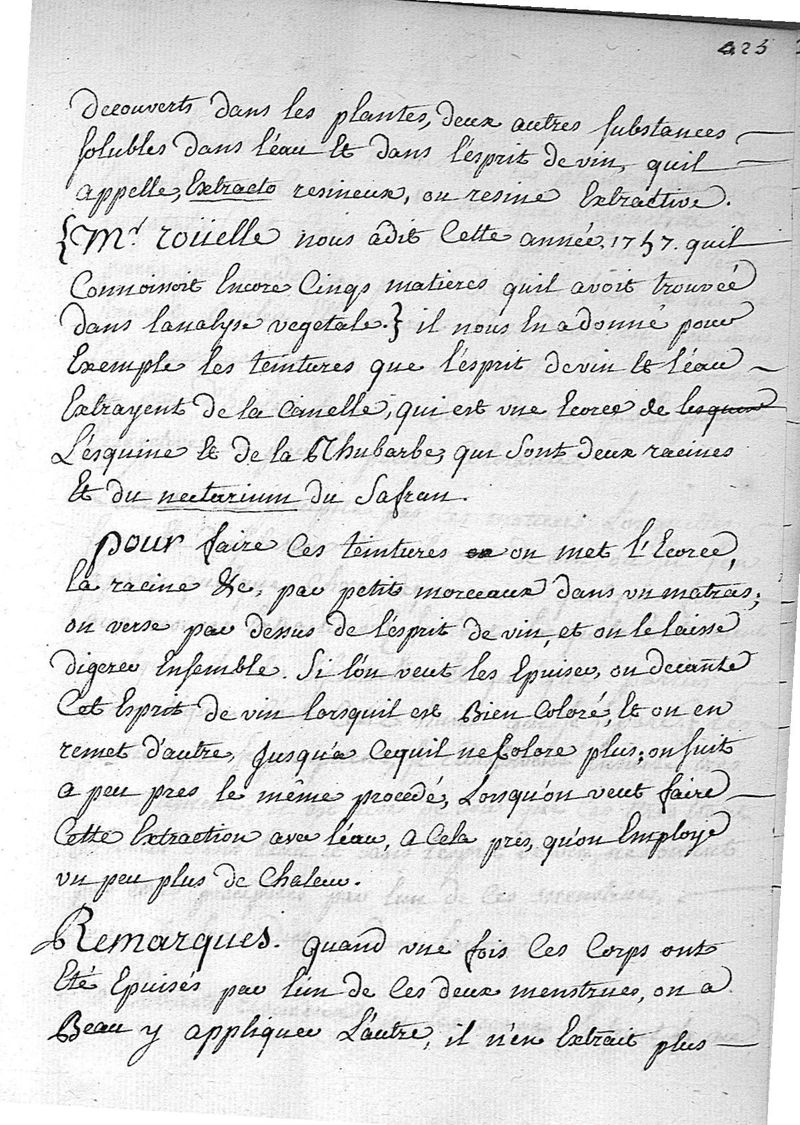 425
decouverts dans les plantes, deux autres substances
solubles dans l'eau et dans l'esprit de vin, quil
appelle, Extracto resineux, ou resine Extractive.
{Mr. roüelle nous adit Cette année, 1757. quil
Connoissoit Encore Cinqs matieres quil avoit trouvéé
dans lanalyse vegetale.} il nous En a donné pour
Exemple les teintures que l'esprit de vin et l'eau
Extrayent de la Canelle, qui est une Ecorce de lesquine
L'esquine et de la Rhubarbe, qui sont deux racines
Et du nectarium du Safran.
pour faire Ces teintures on met l'Ecorce,
la racine &c, par petits morceaux dans un matras;
on verse par dessus de l'esprit de vin, et on le laisse
digerer Ensemble. Si l'on veut les Epuiser, on decante
Cet Esprit de vin lorsquil est Bien Coloré, et on en
remet d'autre, Jusqu'a Cequil ne Colore plus; on suit
a peu pres le même procedé, Lorsqu'on veut faire
Cette Extraction avec l'eau, a Cela près, qu'on Employe
un peu plus de Chaleur.
Remarques. quand une fois Ces Corps ont
Eté Epuisés par l'un de Ces deux menstrues, on a
Beau y appliquer L'autre, il n'en Extrait plus